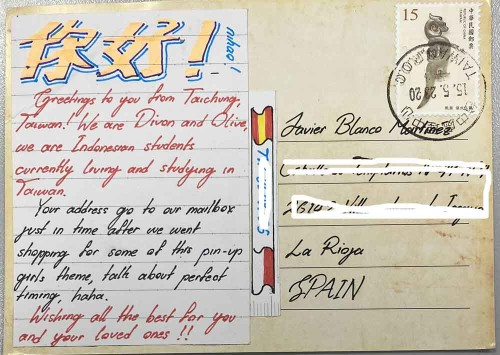 你好!
nihao!
Greetings to you from Taichung,
Taiwan! We are Divan and Olive,
we are Indonesian students
currently living and studying in
Taiwan.
Your address go to our mailbox
just in time after we went
shopping for some of this pin-up
girls theme, talk about perfect
timing, haha.
Wishing all the best for you
and your loved ones !!
15
中華民國郵票
TAIWAN R.O.C.
Javier Blanco Martinez
La Rioja
SPAIN